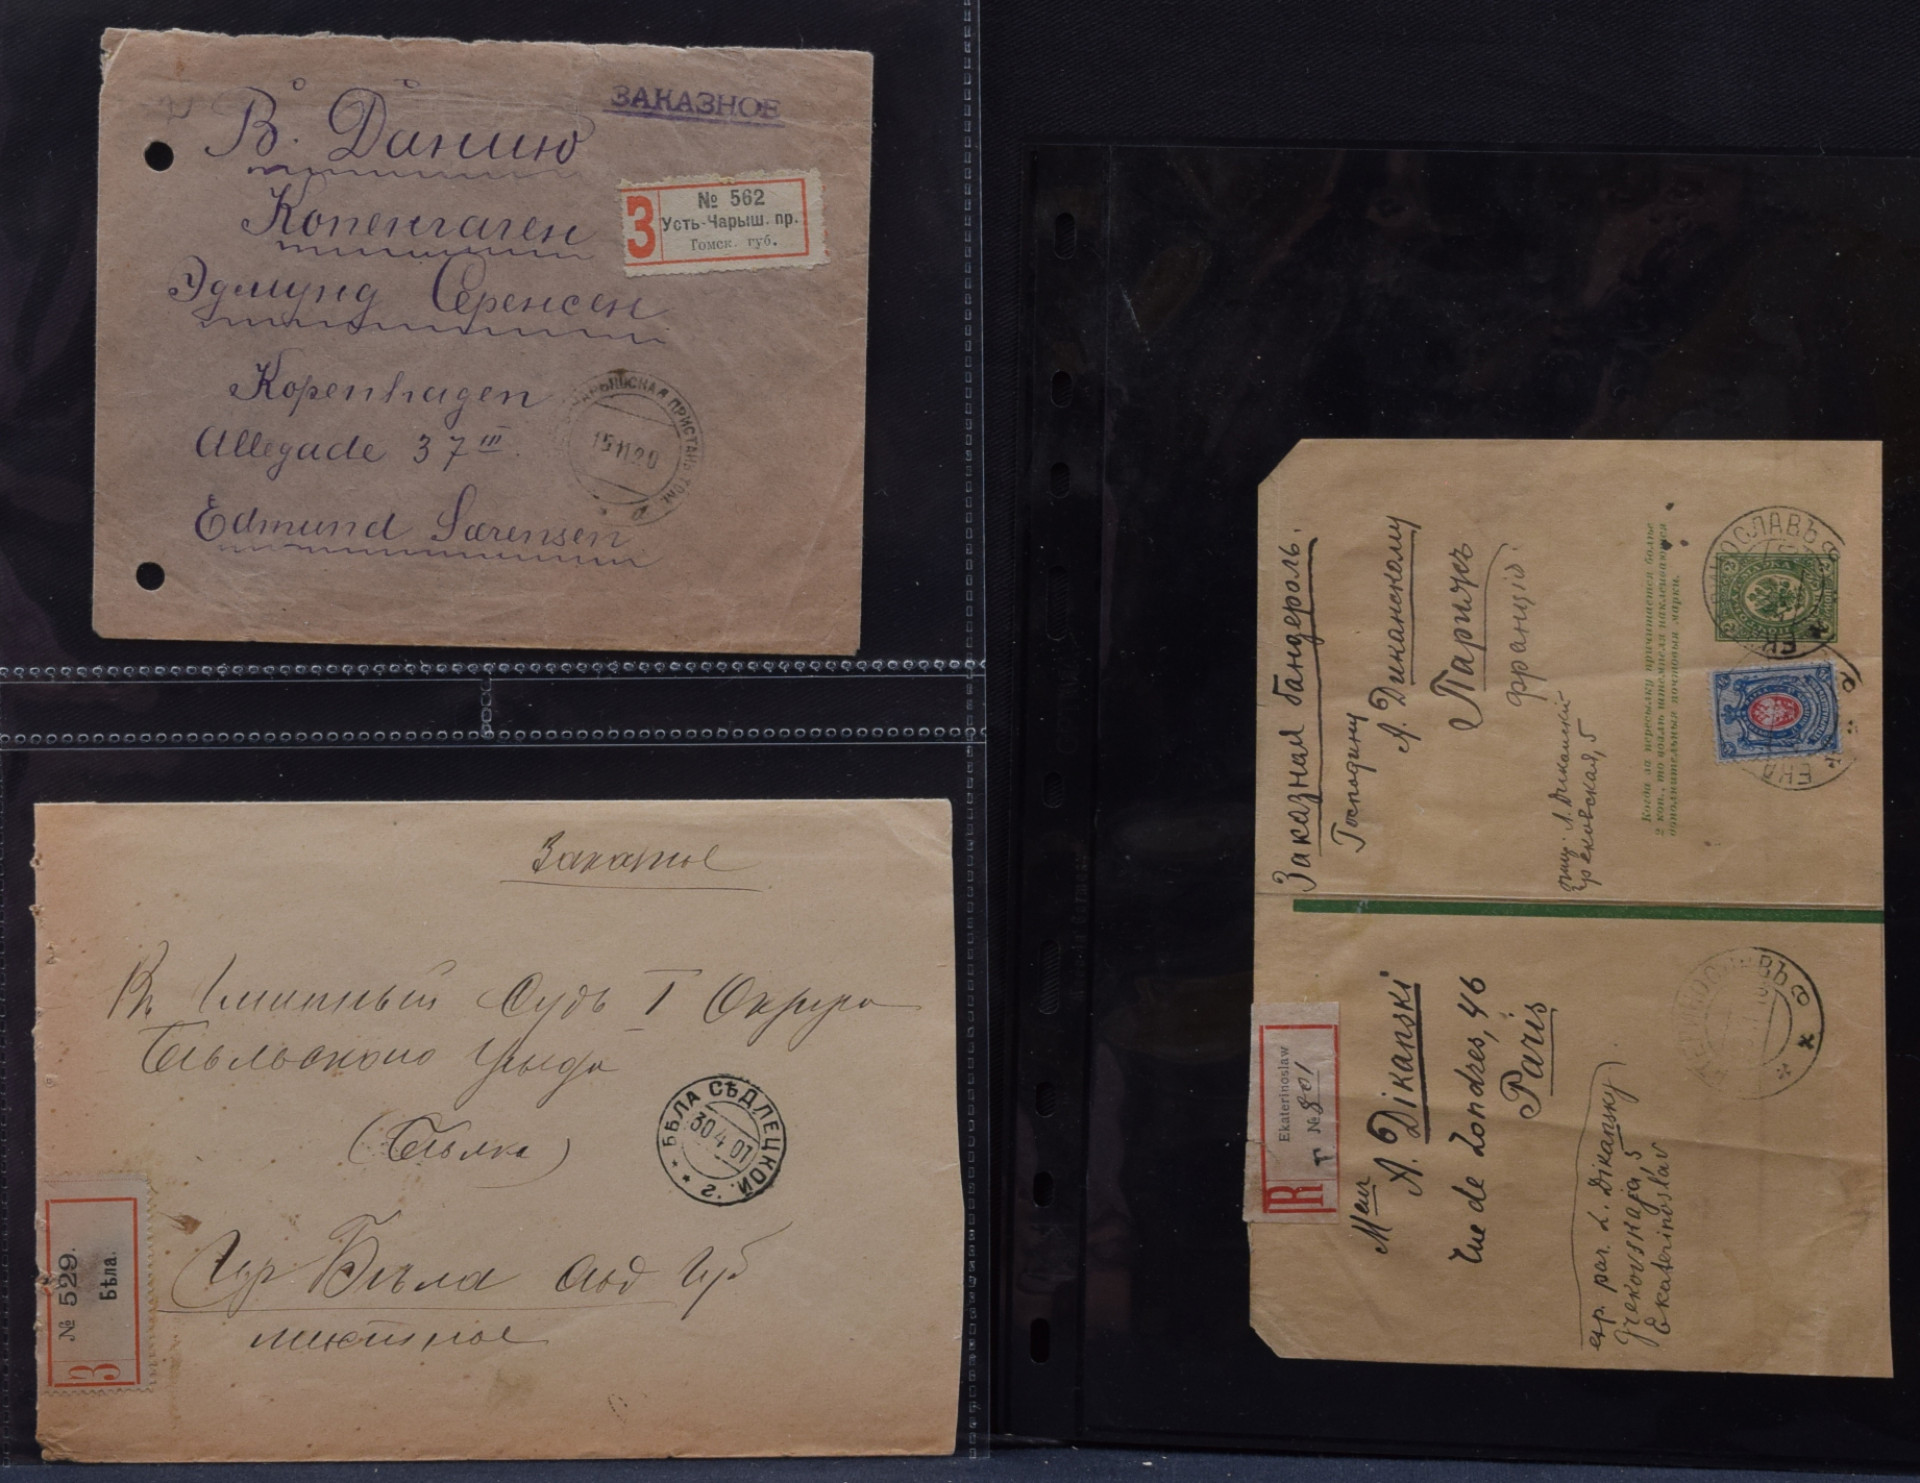 ЗАКАЗНОЕ
В. Данию
Копенгаген
Эдмунд Серенсен
Kopenhagen
Allegade 37 III
Edmund Sørensen
З
№ 562
Усть-Чарыш. пр.
Томск. губ.
ЧАРЫШСКАЯ ПРИСТАНЬ ТОМ
15 11 20
Заказное
Въ Гминный Судъ I Округа
Бѣльского Уѣзда
(Бѣлка)
Гор Бѣла Сѣд Губ
мѣстное
БѢЛА СѢДЛЕЦКОЙ Г.
30 4 07
З
№ 529.
Бѣла.
Заказная бандероль.
Господину
А. Диканскому
Париж
Франція
отпр. Л. Диканский
Грековская, 5
Когда за пересылку причитается болѣе
2 коп., то подателемъ наклеиваются
дополнительныя почтовыя марки.
R
Ekaterinoslaw
№ 801
A. Dikanski
Rue de Londres, 46
Paris
exp. par L. Dikansky
Grekowskaja, 5
Ekaterinoslav